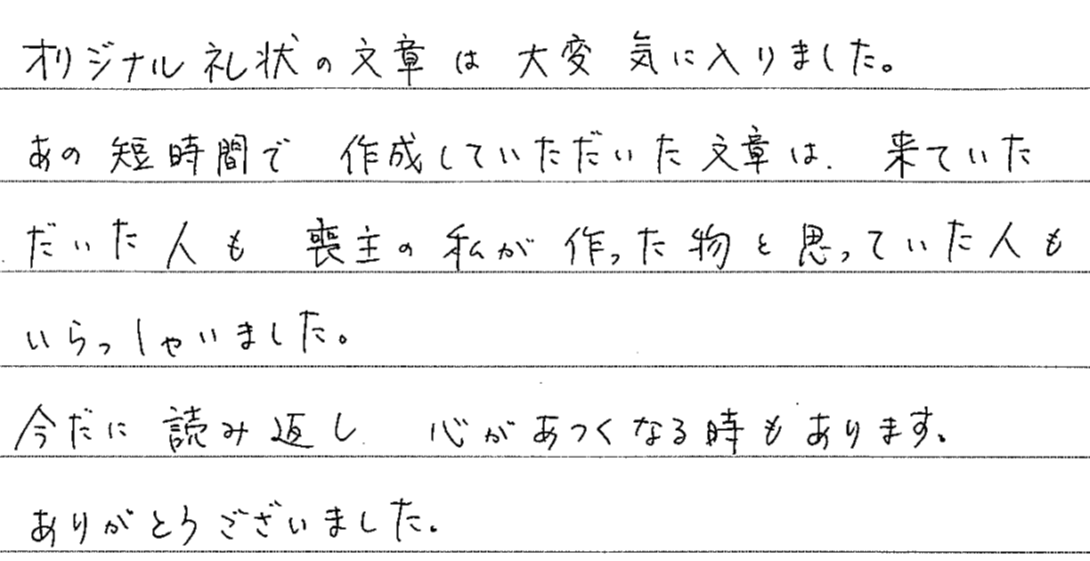 オリジナル礼状の文章は大変気に入りました。
あの短時間で作成していただいた文章は、来ていた
だいた人も喪主の私が作った物と思っていた人も
いらっしゃいました。
今だに読み返し、心があつくなる時もあります。
ありがとうございました。